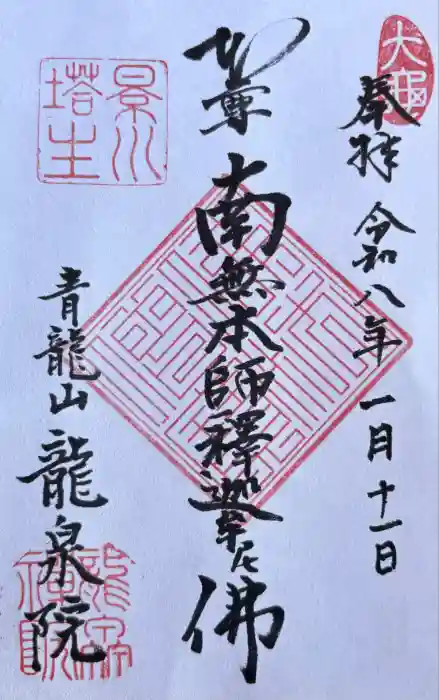 大龜
奉拜
令和八年一月十一日
尊
南無本師釋迦牟尼佛
景川
塔主
青龍山龍泉院